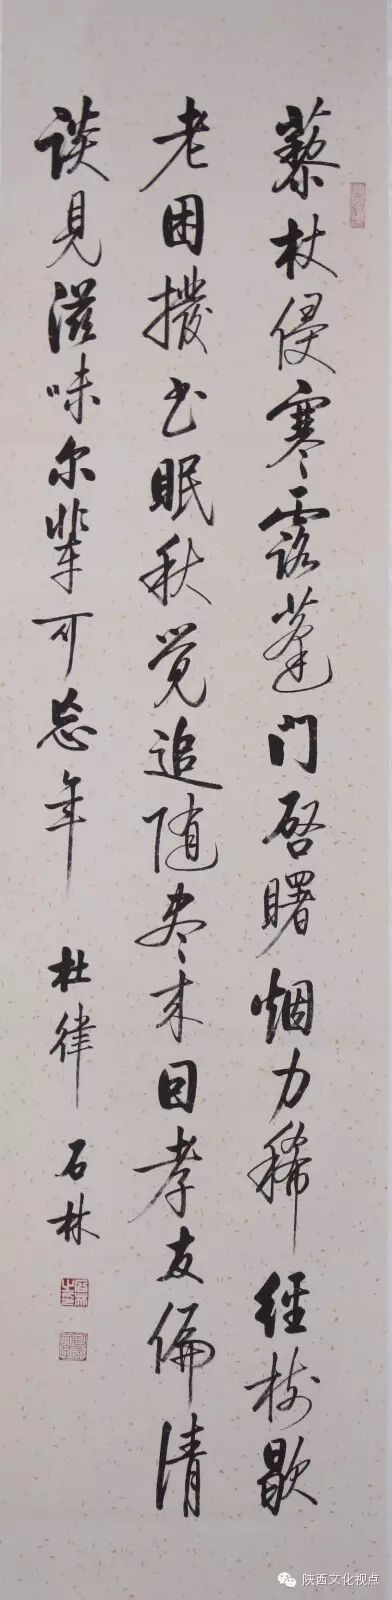 藜杖侵寒露蓬门启曙烟力稀经树歇
老困拨书眠秋觉追随尽来因孝友偏清
谈见滋味尔辈可忘年 杜律 石林
陕西文化视点